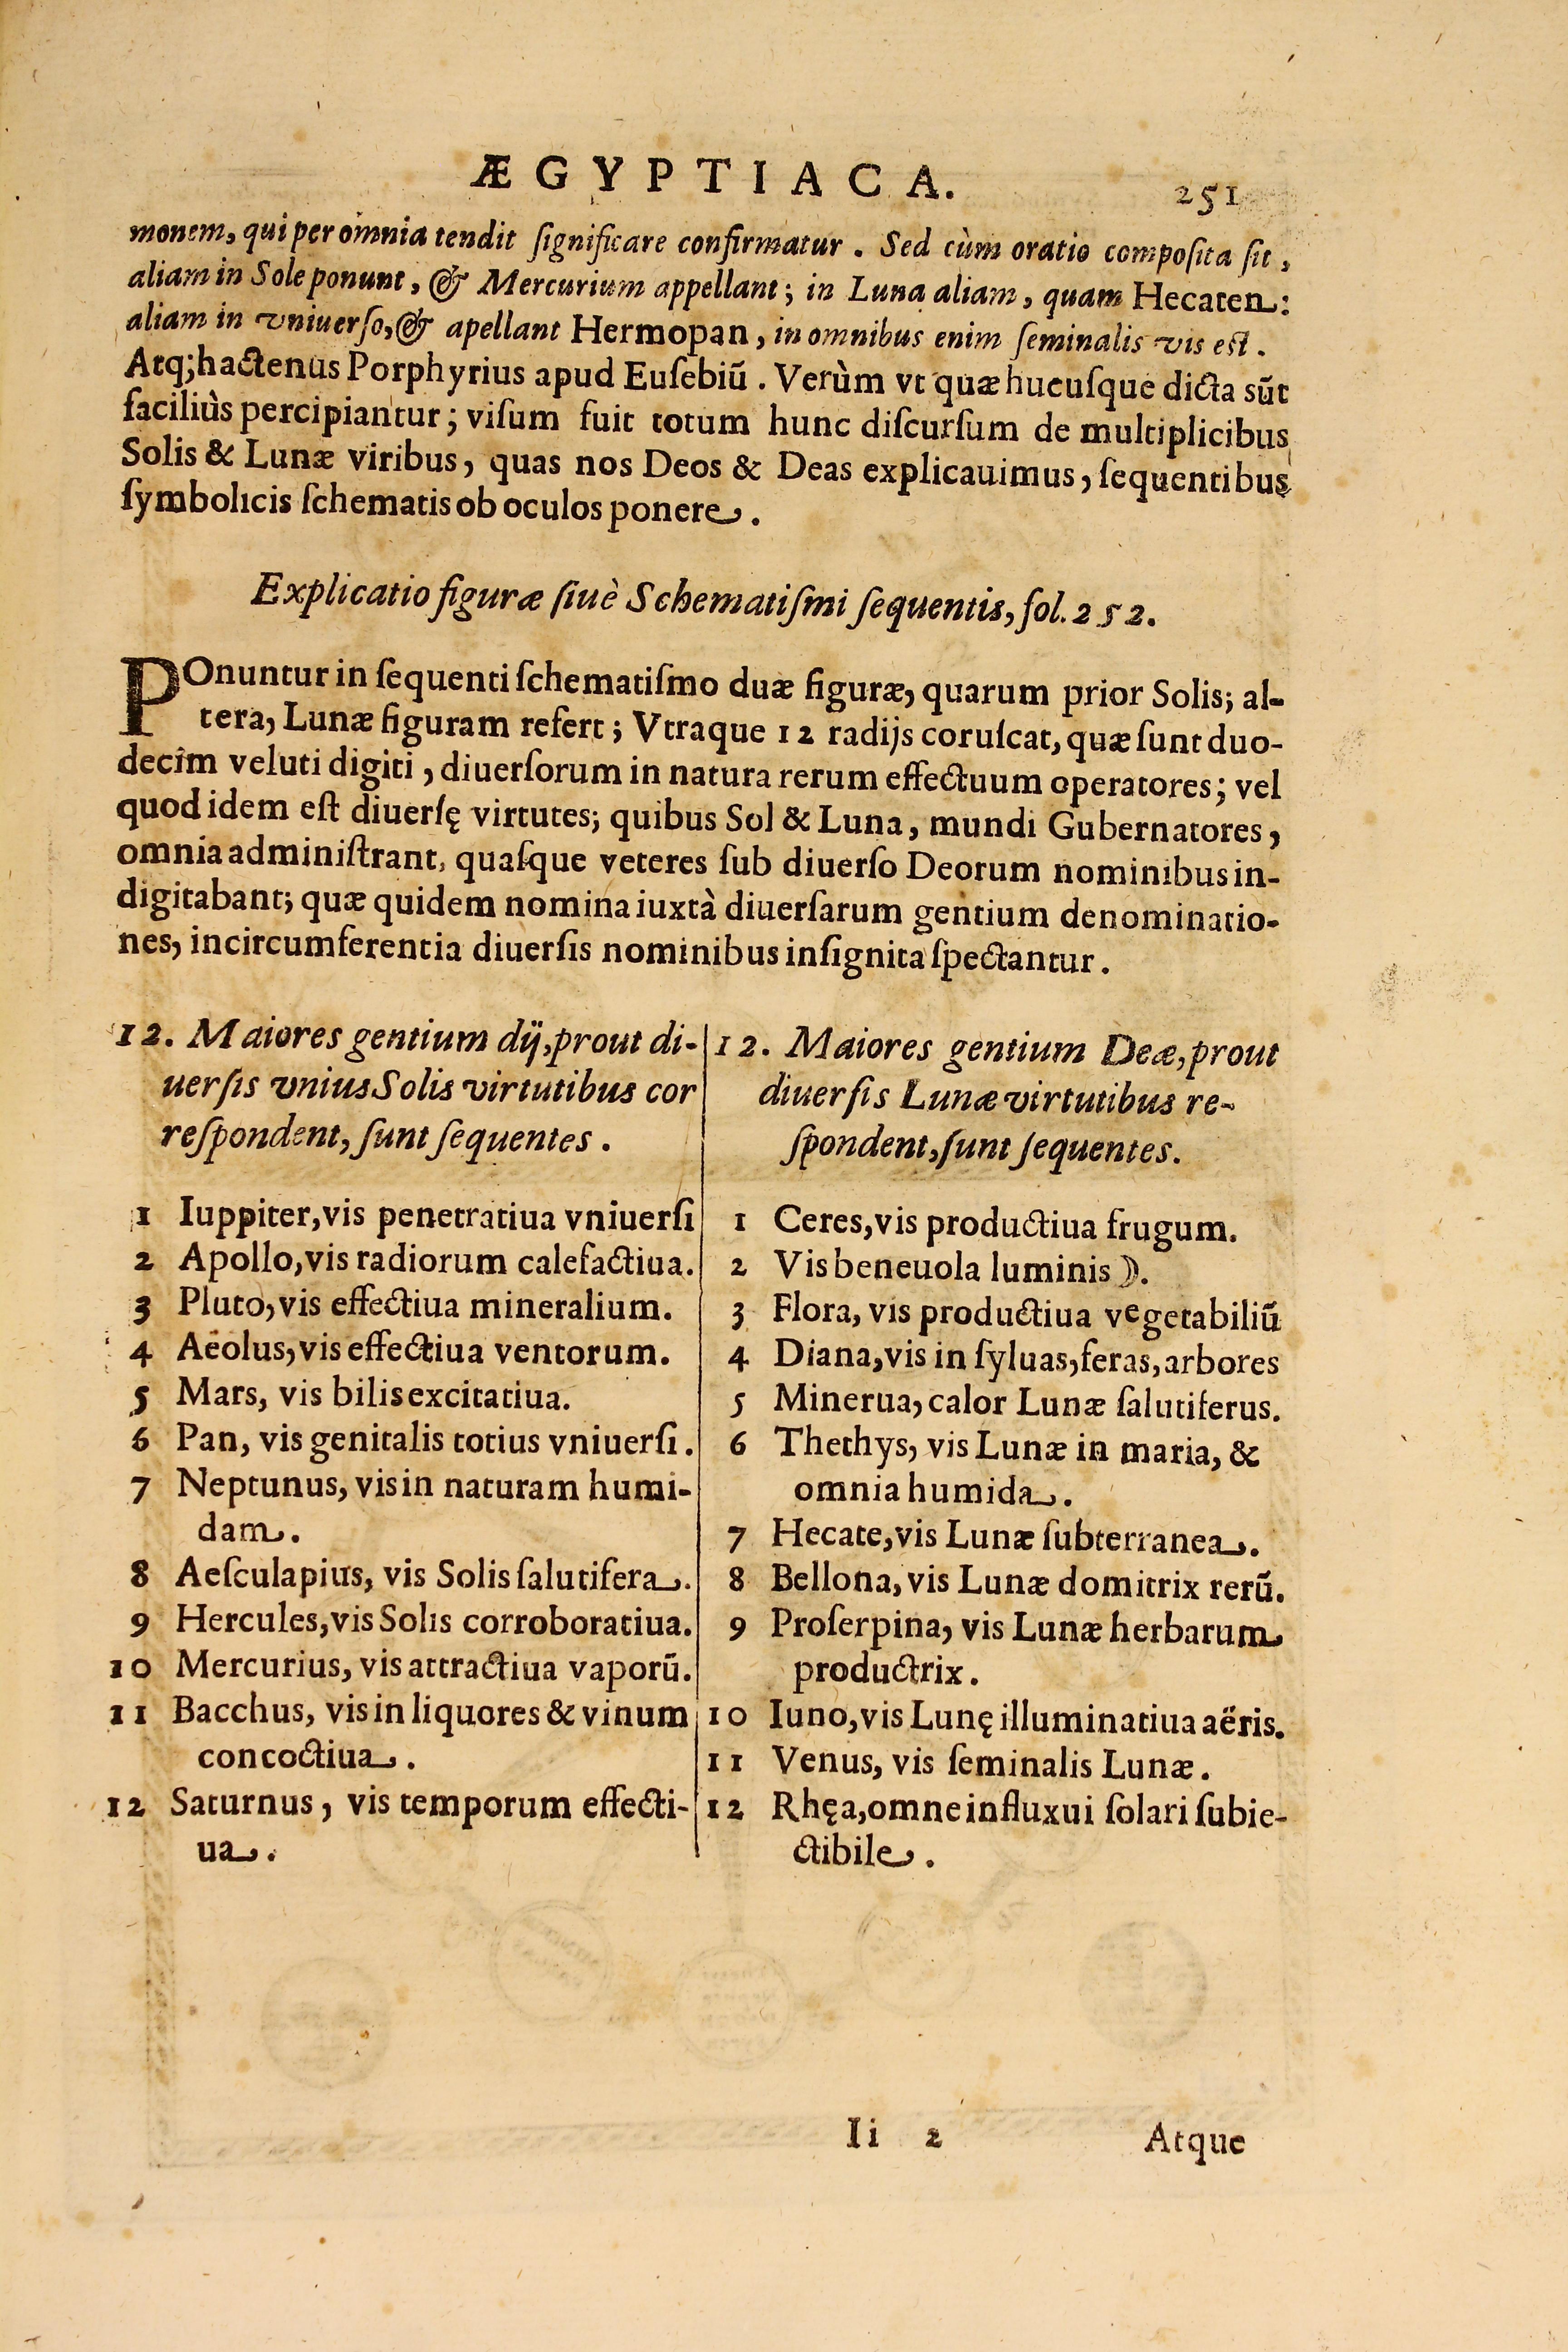 ÆGYPTIACA.
251
monem, qui per omnia tendit ſignificare confirmatur. Sed cùm oratio compoſita ſit,
aliam in Sole ponunt, & Mercurium appellant; in Luna aliam, quam Hecaten:
aliam in vniuerſo, & apellant Hermopan, in omnibus enim ſeminalis vis eſt.
Atq; hactenus Porphyrius apud Euſebiũ. Verùm vt quæ hucuſque dicta sũt
faciliùs percipiantur; viſum fuit totum hunc diſcurſum de multiplicibus
Solis & Lunæ viribus, quas nos Deos & Deas explicauimus, ſequentibus
ſymbolicis ſchematis ob oculos ponere.
Explicatio figuræ ſiuè Schematiſmi ſequentis, fol. 252.
POnuntur in ſequenti ſchematiſmo duæ figuræ, quarum prior Solis; al-
tera, Lunæ figuram refert; Vtraque 12 radijs coruſcat, quæ ſunt duo-
decim veluti digiti, diuerſorum in natura rerum effectuum operatores; vel
quod idem eſt diuerſę virtutes; quibus Sol & Luna, mundi Gubernatores,
omnia adminiſtrant, quaſque veteres ſub diuerſo Deorum nominibus in-
digitabant; quæ quidem nomina iuxtà diuerſarum gentium denominatio-
nes, in circumferentia diuerſis nominibus inſignita ſpectantur.
12. Maiores gentium dij, prout di-
uerſis vnius Solis virtutibus cor
reſpondent, ſunt ſequentes.
1 Iuppiter, vis penetratiua vniuerſi
2 Apollo, vis radiorum calefactiua.
3 Pluto, vis effectiua mineralium.
4 Aëolus, vis effectiua ventorum.
5 Mars, vis bilis excitatiua.
6 Pan, vis genitalis totius vniuerſi.
7 Neptunus, vis in naturam humi-
dam.
8 Aeſculapius, vis Solis ſalutifera.
9 Hercules, vis Solis corroboratiua.
10 Mercurius, vis attractiua vaporũ.
11 Bacchus, vis in liquores & vinum
concoctiua.
12 Saturnus, vis temporum effecti-
ua.
12. Maiores gentium Deæ, prout
diuerſis Lunæ virtutibus re-
ſpondent, ſunt ſequentes.
1 Ceres, vis productiua frugum.
2 Vis beneuola luminis ☽.
3 Flora, vis productiua vegetabiliũ
4 Diana, vis in ſyluas, feras, arbores
5 Minerua, calor Lunæ ſalutiferus.
6 Thethys, vis Lunæ in maria, &
omnia humida.
7 Hecate, vis Lunæ ſubterranea.
8 Bellona, vis Lunæ domitrix rerũ.
9 Proſerpina, vis Lunæ herbarum
productrix.
10 Iuno, vis Lunę illuminatiua aëris.
11 Venus, vis ſeminalis Lunæ.
12 Rhęa, omne influxui ſolari ſubie-
ctibile.
Ii 2
Atque